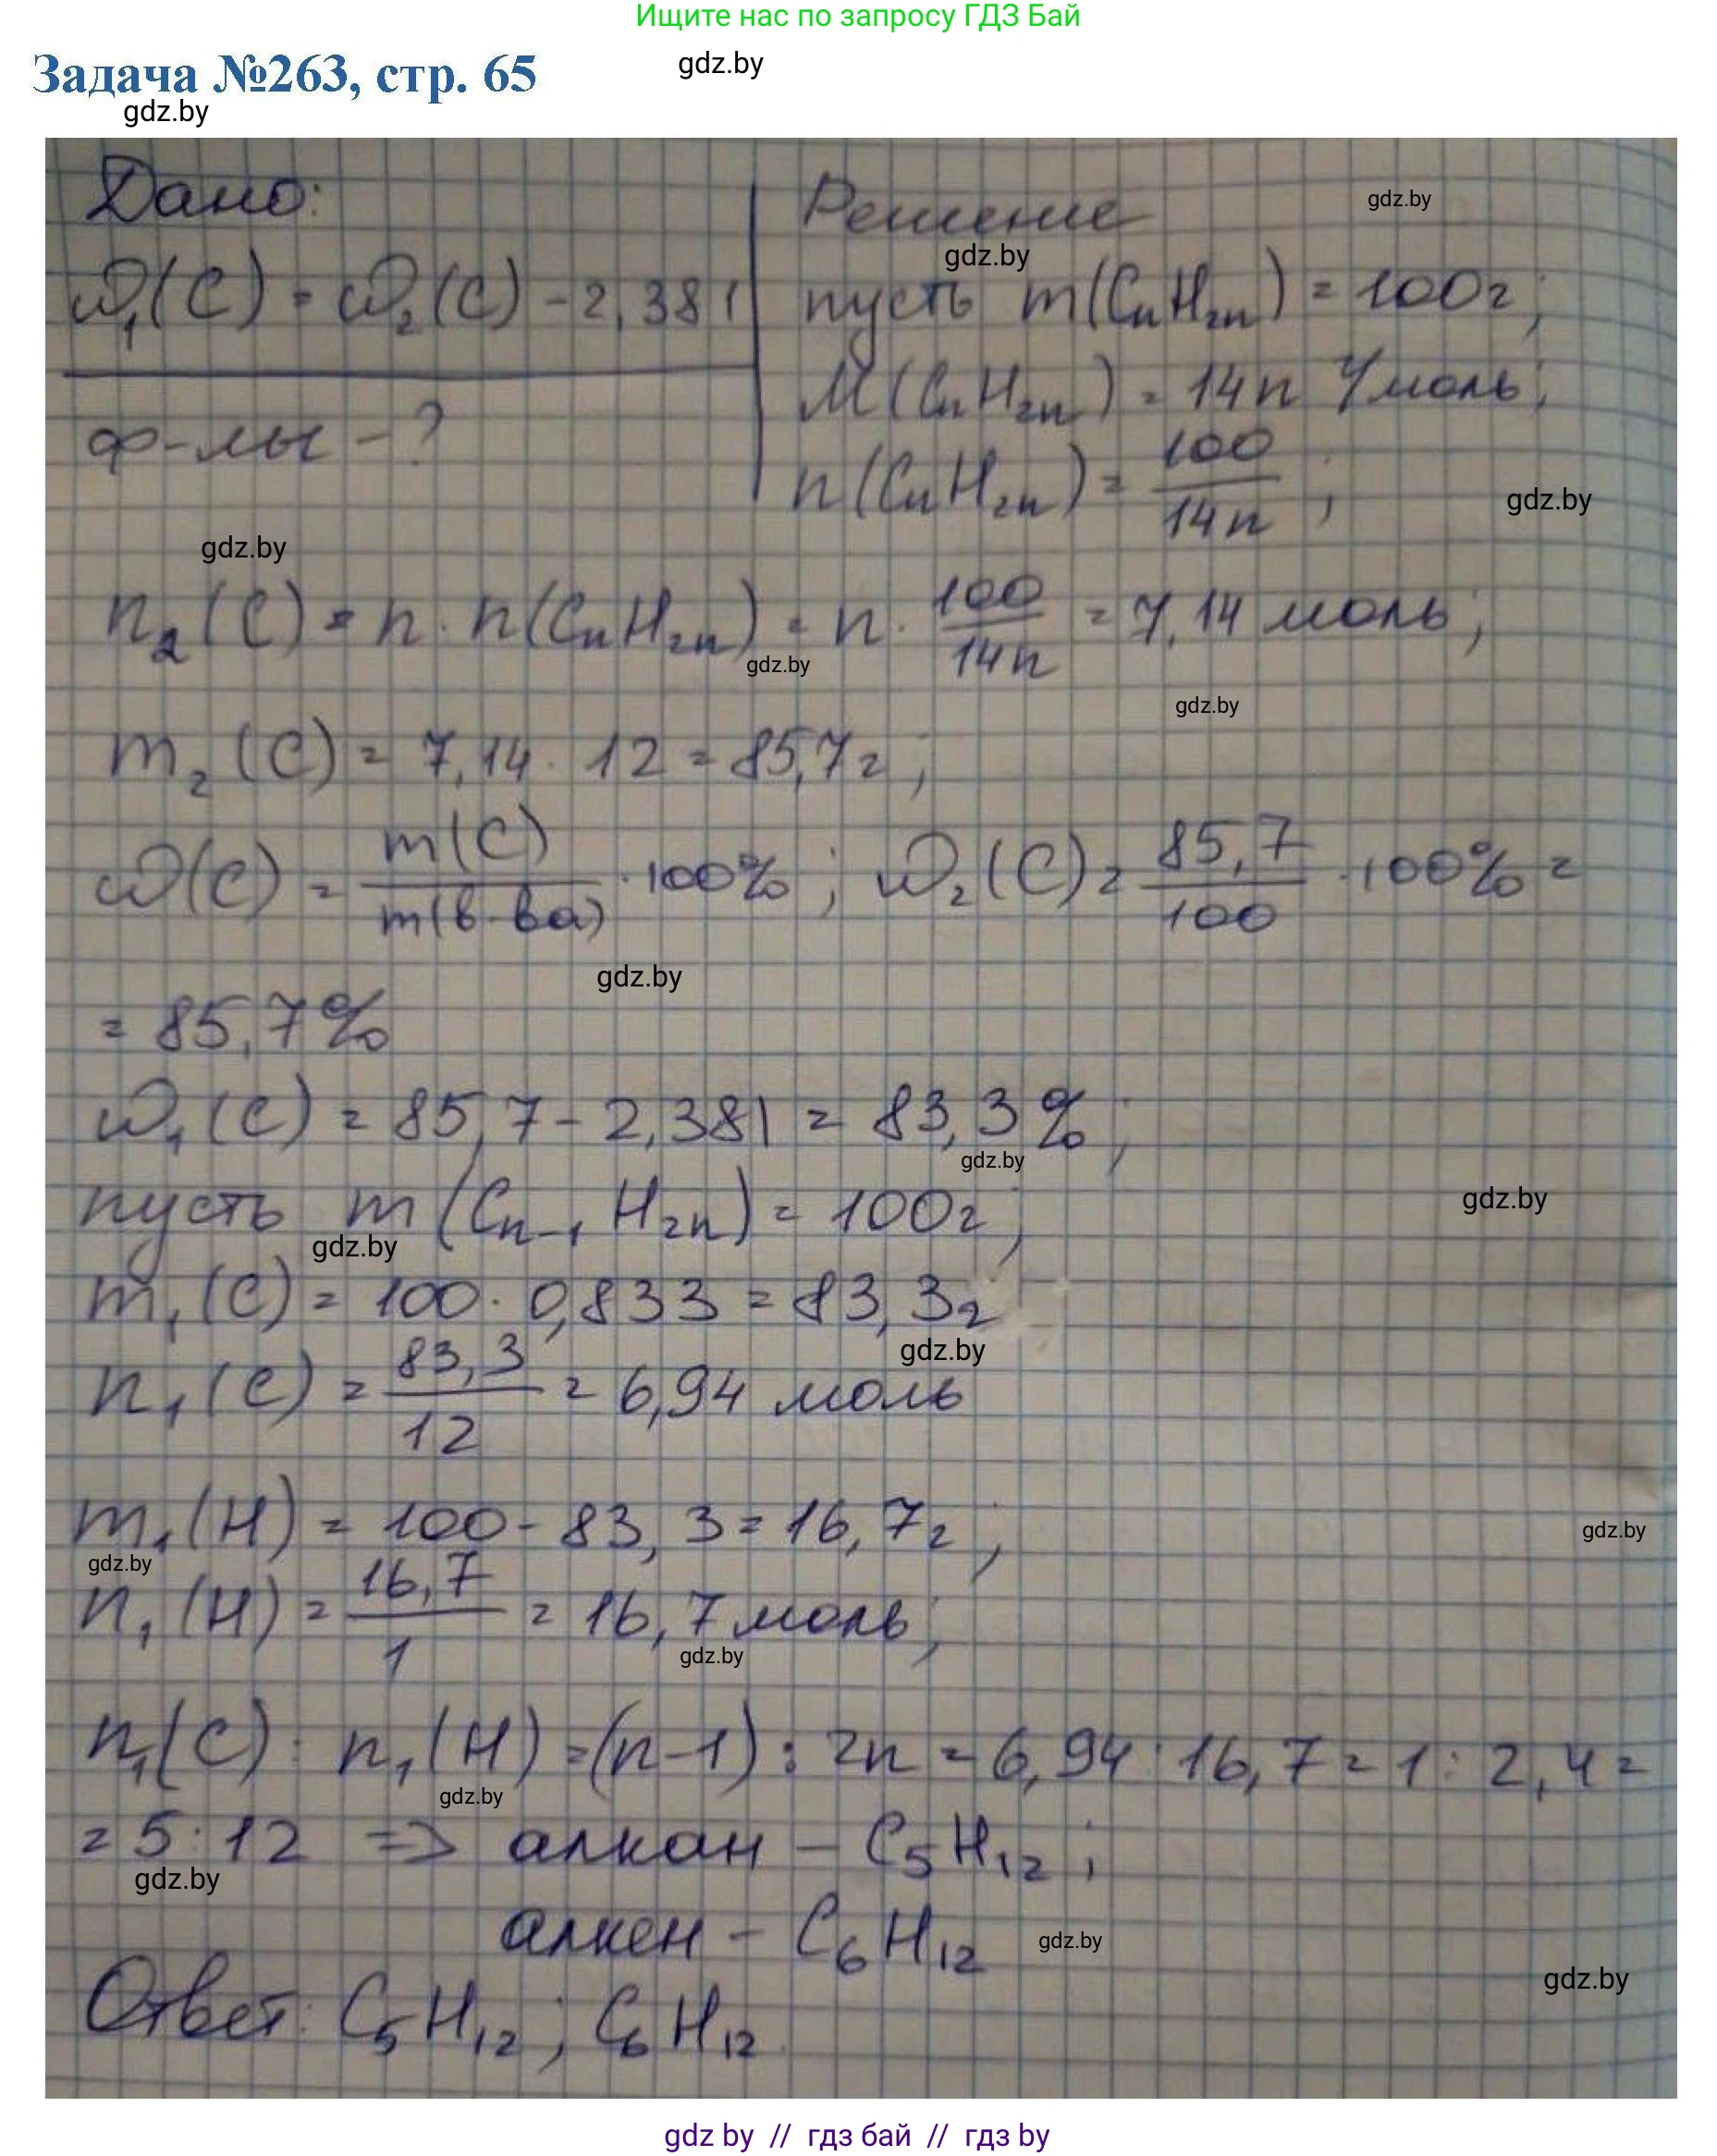 Ищите нас по запросу ГДЗ Бай
Задача №263, стр. 65
gdz.by
gdz.by
Дано:
ω₁(C) = ω₂(C) - 2,381
ф-лы - ?
Решение
gdz.by
gdz.by
пусть m(CₙH₂ₙ) = 100г;
M(CₙH₂ₙ) = 14n г/моль;
n(CₙH₂ₙ) = 100/14n;
gdz.by
gdz.by
n₂(C) = n · n(CₙH₂ₙ) = n · 100/14n = 7,14 моль;
gdz.by
gdz.by
m₂(C) = 7,14 · 12 = 85,7г;
ω(C) = m(C)/m(в-ва) · 100%; ω₂(C) = 85,7/100 · 100% =
gdz.by
= 85,7%
ω₁(C) = 85,7 - 2,381 = 83,3%;
gdz.by
пусть m(Cₙ₋₁H₂ₙ) = 100г;
gdz.by
gdz.by
m₁(C) = 100 · 0,833 = 83,3г
gdz.by
n₁(C) = 83,3/12 = 6,94 моль
m₁(H) = 100 - 83,3 = 16,7г;
gdz.by
gdz.by
n₁(H) = 16,7/1 = 16,7 моль;
gdz.by
n₁(C) : n₁(H) = (n-1) : 2n = 6,94 : 16,7 = 1 : 2,4 =
gdz.by
= 5 : 12 => алкан - C₅H₁₂;
gdz.by
алкен - C₆H₁₂
gdz.by
gdz.by
Ответ: C₅H₁₂; C₆H₁₂.
gdz by // гдз бай // гдз by